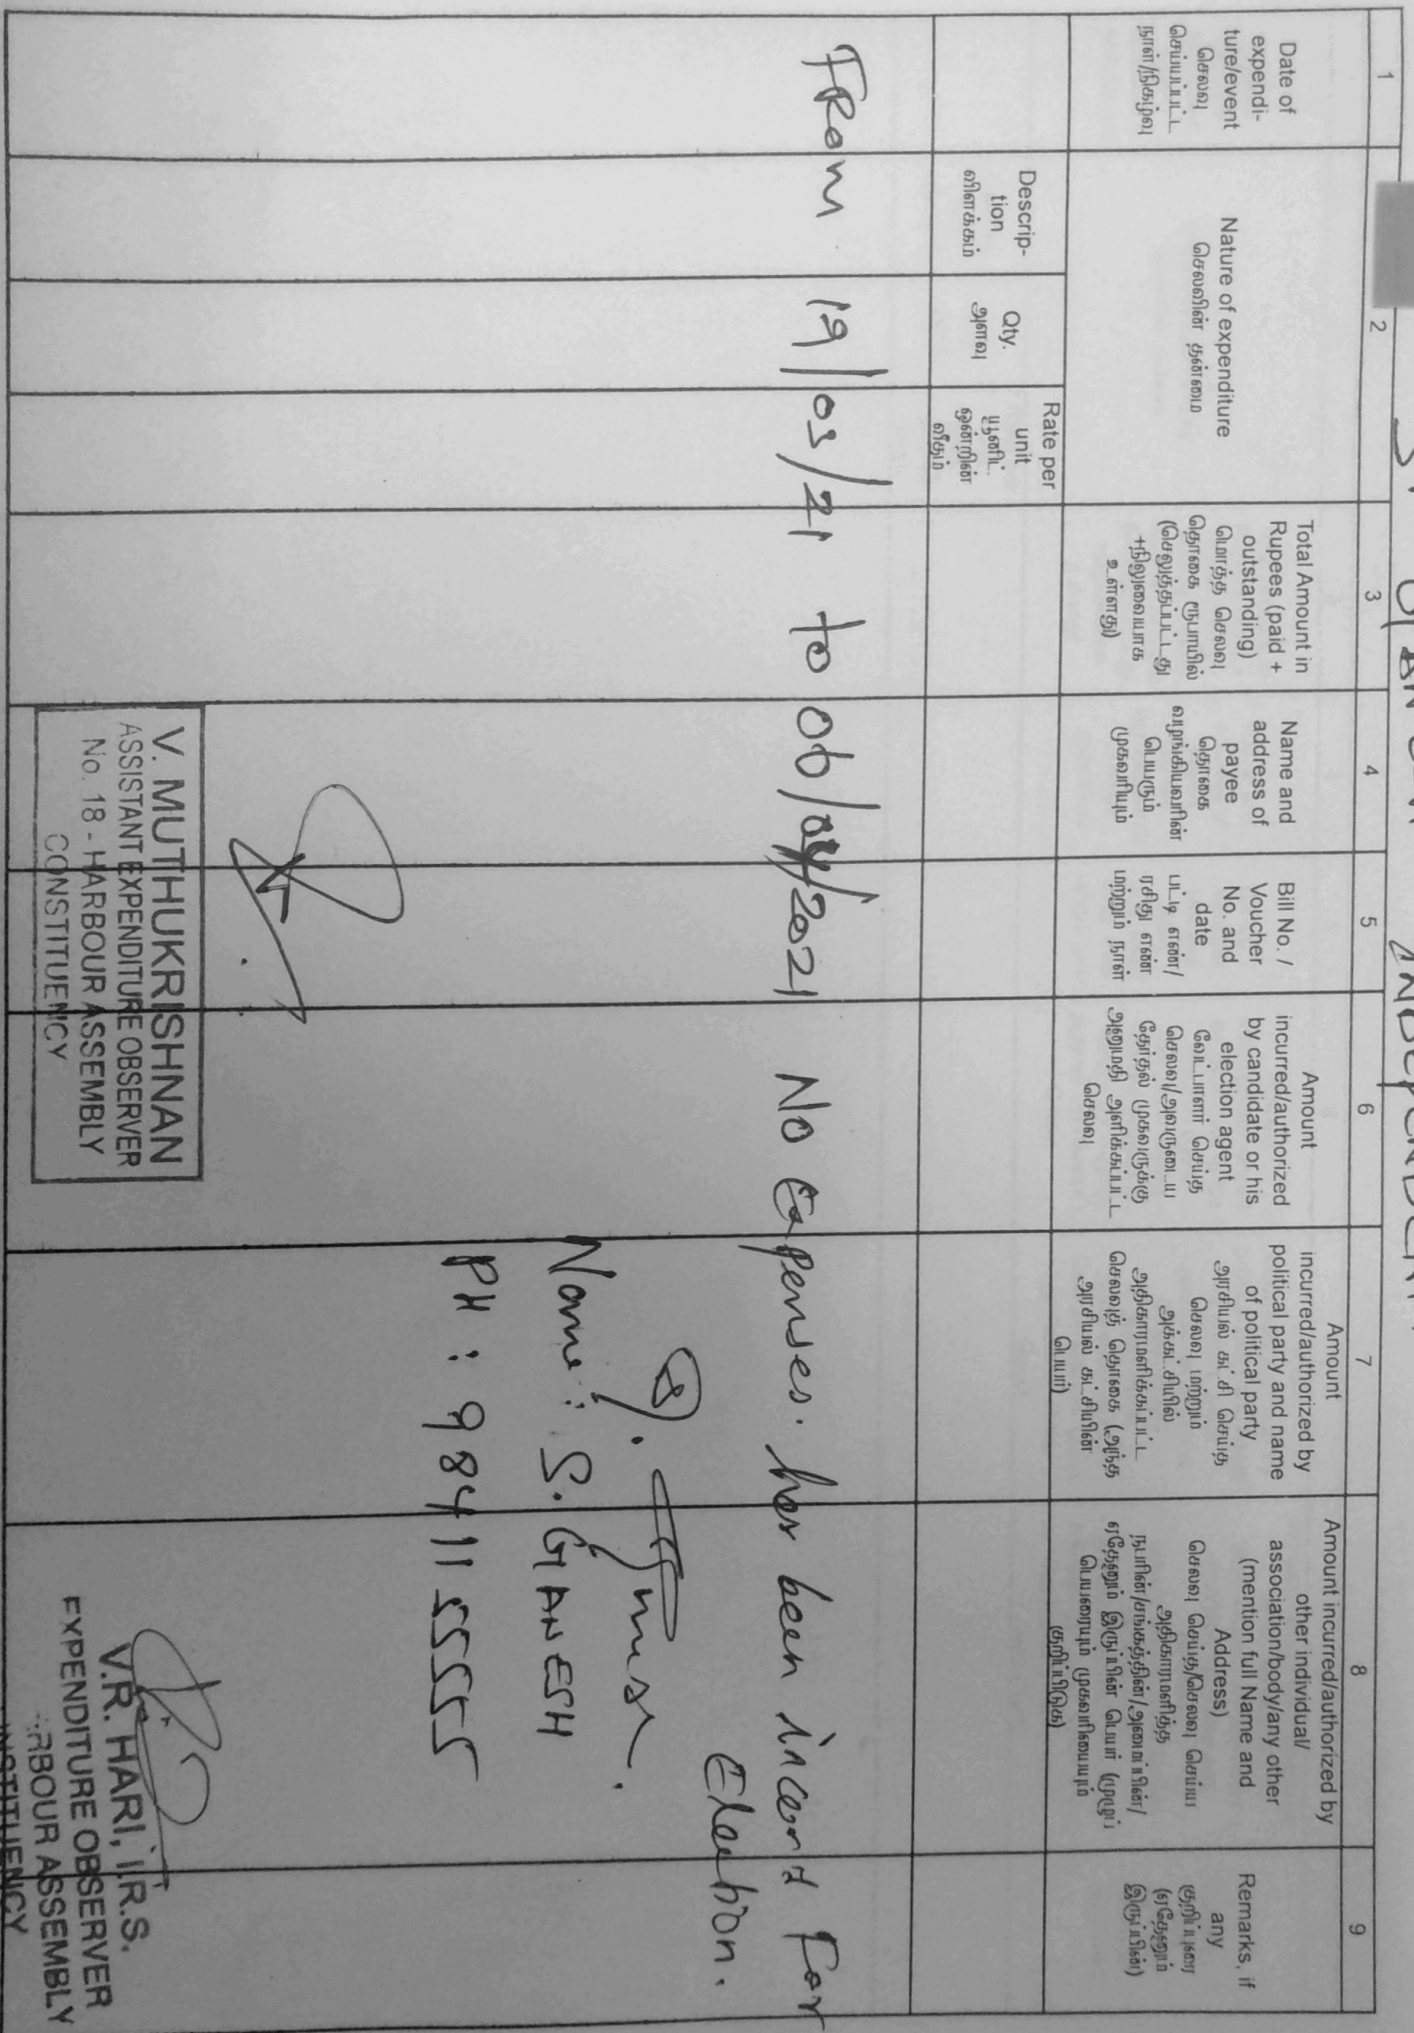 S. GANESH INDEPENDENT
1
2
3
4
5
6
7
8
9
Date of
expendi-
ture/event
செலவு
செய்யப்பட்ட
நாள்/நிகழ்வு
Nature of expenditure
செலவின் தன்மை
Descrip-
tion
விளக்கம்
Qty.
அளவு
Rate per
unit
யூனிட்
ஒன்றின்
வீதம்
Total Amount in
Rupees (paid +
outstanding)
மொத்த செலவு
தொகை ரூபாயில்
(செலுத்தப்பட்டது
+நிலுவையாக
உள்ளது)
Name and
address of
payee
தொகை
வழங்கியவரின்
பெயரும்
முகவரியும்
Bill No. /
Voucher
No. and
date
பட்டி எண்/
ரசீது எண்
மற்றும் நாள்
Amount
incurred/authorized
by candidate or his
election agent
வேட்பாளர் செய்த
செலவு/அவருடைய
தேர்தல் முகவருக்கு
அனுமதி அளிக்கப்பட்ட
செலவு
Amount
incurred/authorized by
political party and name
of political party
அரசியல் கட்சி செய்த
செலவு மற்றும்
அக்கட்சியில்
அதிகாரமளிக்கப்பட்ட
செலவுத் தொகை (அந்த
அரசியல் கட்சியின்
பெயர்)
Amount incurred/authorized by
other individual/
association/body/any other
(mention full Name and
Address)
செலவு செய்த/செலவு செய்ய
அதிகாரமளித்த
நபரின்/சங்கத்தின்/அமைப்பின்/
ஏதேனும் இருப்பின் பெயர் (முழுப்
பெயரையும் முகவரியையும்
குறிப்பிடுக)
Remarks, if
any
குறிப்புரை
(ஏதேனும்
இருப்பின்)
FROM 19/03/21 to 06/04/2021 No Expenses. has been incurd For
Election.
Name: S. GANESH
PH: 9841155555
V. MUTHUKRISHNAN
ASSISTANT EXPENDITURE OBSERVER
No. 18 - HARBOUR ASSEMBLY
CONSTITUENCY
V.R. HARI, I.R.S.
EXPENDITURE OBSERVER
RBOUR ASSEMBLY
NSTITUENCY